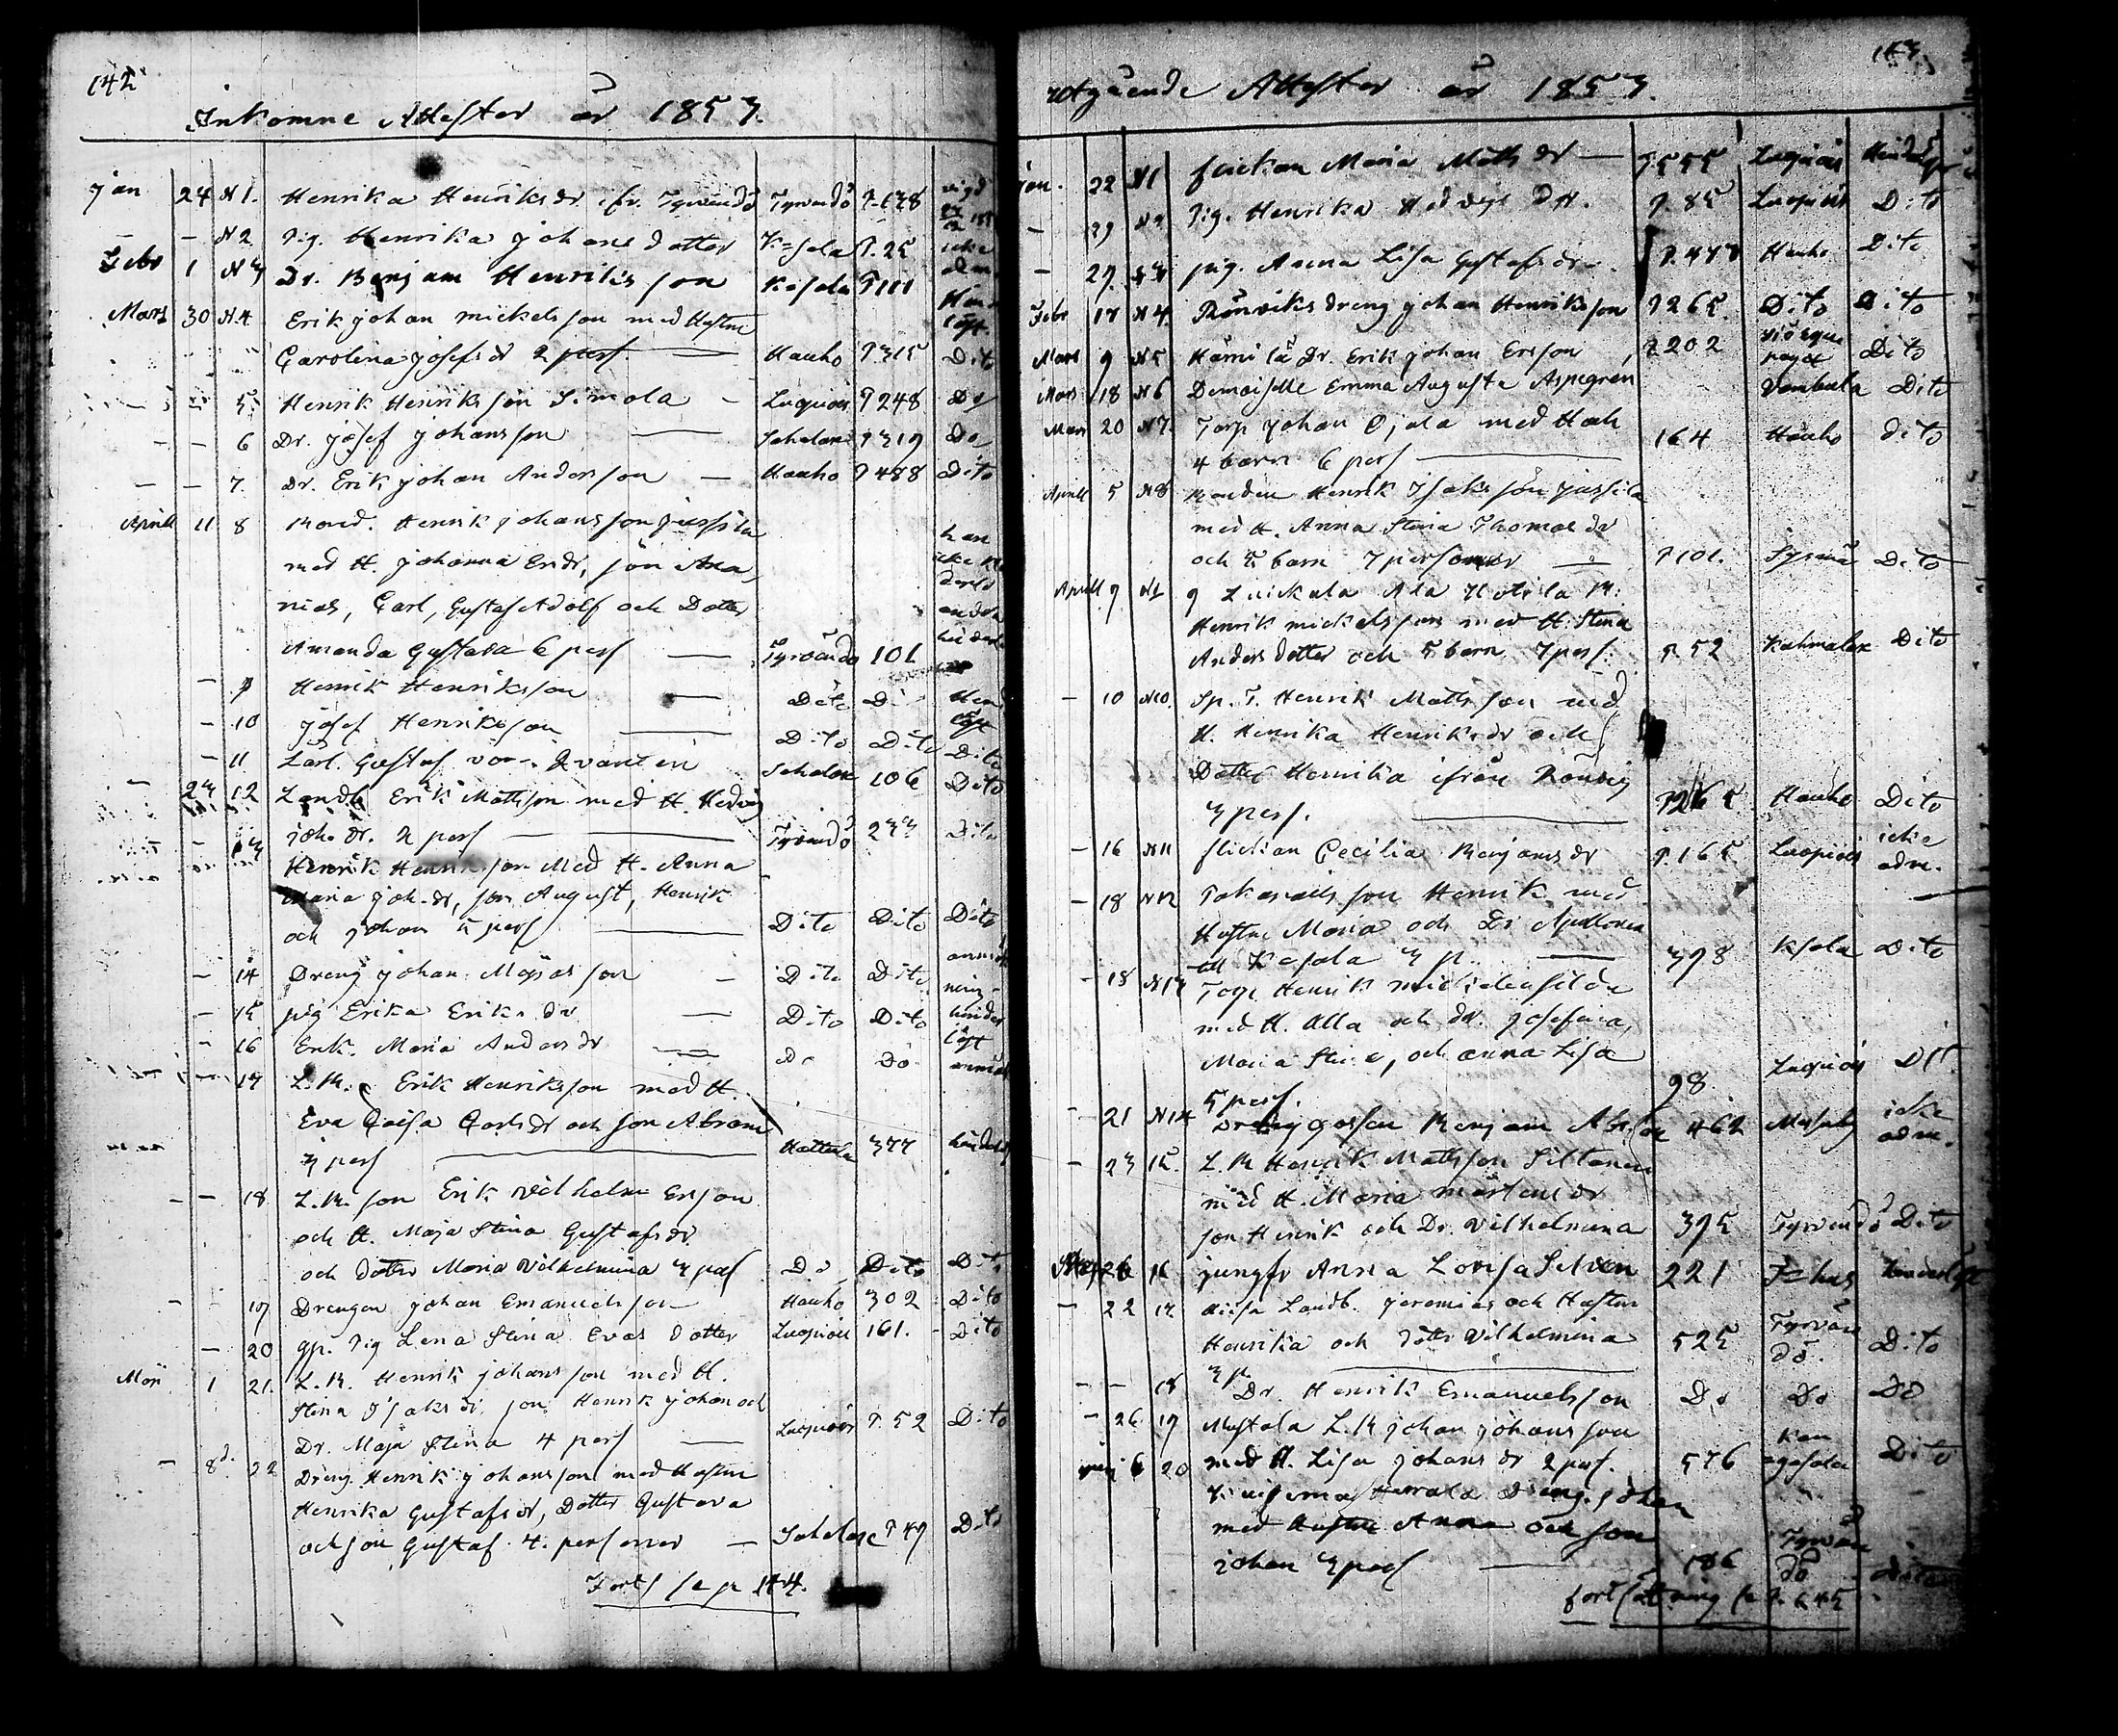 142
Inkomne Attester år 1853.
Jan 24 N1. Henrika Henriksdr ifr. Tyrvändö Tyrvändö P.138
– N2 Pig. Henrika Johansdotter K=sala P.25
Febr 1 N3 Dr. Benjam Henriksson K=sala P111
Mars 30 N4 Erik Johan Mickelsson med Hustru
Carolina Josefsdr 2 pers. Hauho P315 Dito
5. Henrik Henriksson Simola – Luopiois P248 Do
– – 6 Dr. Josef Johansson Sahalax P319 Do
– – 7. Dr. Erik Johan Andersson – Hauho P488 Dito
Aprill 11 8 Bond. Henrik Johansson Jussila
med H. Johanna Ersdr, son Ana
nias, Carl, Gustaf Adolf och Dotter
Amanda Gustava 6 pers Tyrvändö 101
– 9 Henrik Henriksson Dito Do
– 10 Josef Henriksson Dito Dito Dito
– 11 Carl Gustaf von Qvanten Sahalax 106 Dito
– 23 12 Landb Erik Mattsson med H. Hedvig
Joh. dr. 2 pers Tyrvändö 233 Dito
– 13 Henrik Henriksson Med H. Anna
Maria Joh-dr, son August, Henrik
och Johan 5 pers Dito Dito Dito
– 14 Dreng Johan Mojsesson – Dito Dito
– 15 pig Erika Eriksdr Dito Dito hinder
– 16 Enk. Maria Andersdr Do Do löst
– 17 L.B. Erik Henriksson med H.
Eva Caisa Carlsdr och son Abram
3 pers Hattula 377
– – 18 L.B. son Erik Vilhelm Erson
och H. Maja Stina Gustafsdr
och dotter Maria Vilhelmina 3 pers Do Dito Dito
– 19 Drengen Johan Emanuelsson Hauho 302 Dito
– 20 gp. Pig Lena Stina Evasdotter Luopiois 161. Dito
Maj 1 21. L.B. Henrik Johansson med H.
Stina Isaksdr, son Henrik Johan och
Dr. Maja Stina 4 pers Luopiois P.52 Dito
– 8d. 22 Dreng. Henrik Johansson med Hustru
Henrika Gustafsdr, Dotter Gustava
och son Gustaf. 4. personer – Sahalax P49 Dito
Forts se p 144.
143
utgående Attester år 1853.
Jan. 22 N1 flickan Maria Mattsdr – P.555 Luopiois
– 29 N2 Pig. Henrika Hedvig P.85 Luopiois Dito
– 29. N3 pig. Anna Lisa Gustafsdr – P.477 Hauho Dito
Febr 18 N4. Rönviks dreng Johan Henriksson P265. Dito Dito
Mars 9 N5 Dr. Erik Johan Erson P202 Dito
Mars 18 N6 Demoiselle Emma Augusta Aspegren Vambula Dito
Mars 20 N7. Torp Johan Ojala med H och
4 barn 6 pers 164 Hauho dito
Aprill 5 N8 Bonden Henrik Isaksson Jussila
med H. Anna Stina Thomasdr
och 5 barn 7 personer P101. Sysmä Dito
Aprill 9 9 Luickala Ala Uotila B.
Henrik Mickelsson med H. Stina
Andersdotter och 5 barn 7 pers. P.52 Kuhmalax Dito
– 10 N10. Sp. T. Henrik Mattsson med
H. Henrika Henriksdr och
Dotter Henrika ifrån Rönvig
3 pers. P265 Hauho Dito
– 16 N11 flickan Cecilia Benjamsdr P.165 Luopiois icke adm.
– 18 N12 son Henrik med
Hustru Maria och Dr Apollonia
till K=sala 3 p. 398 Ksala Dito
– 18 N13 Torp. Henrik Mickelsson
med H. Ulla och dr. Josefina,
Maria Stina, och Anna Lisa
5 pers. 98. Luopiois Dit.
– 21 N14 Dreng gossen Benjam 462 Messuby icke adm.
– 23 15. L.B Henrik Mattsson Siltanen
med H. Maria Mårtensdr
son Henrik och Dr. Vilhelmina 395 Tyrvändö Dito
26 16 jungfr Anna Lovisa Selven 221 T=hus
– 22 17 Landb. Jeremias och Hustru
Henrika och dotter Vilhelmina 525 Tyrvändö. Dito
3 p.
– – 18 Dr. Henrik Emanuelsson Do Do Do
– 26 19 Mustala L.B Johan Johansson
med H. Lisa Johansdr 2 pers. 576 Kangasala Dito
6 20 Dreng. Johan
med Hustru Anna och son
Johan 3 pers 186 Tyrvändö Dito
fortsättning se P. 645